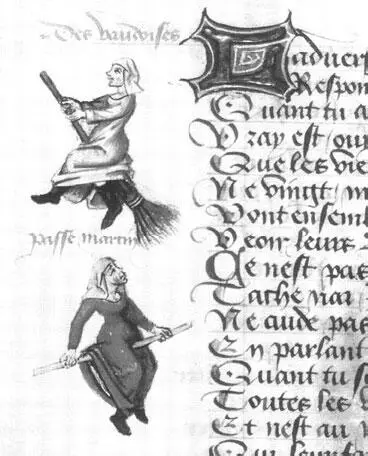 Des vaudoises
passe martin
adverſ
Respon
Quant tu a
Vray est ouy
Que les vie
Ne vingt
Vont ensembl
Veoir leurs
Ce nest pas
Ne cuide pas
En parlant
Quant tu s
Toutes les
Et nest au